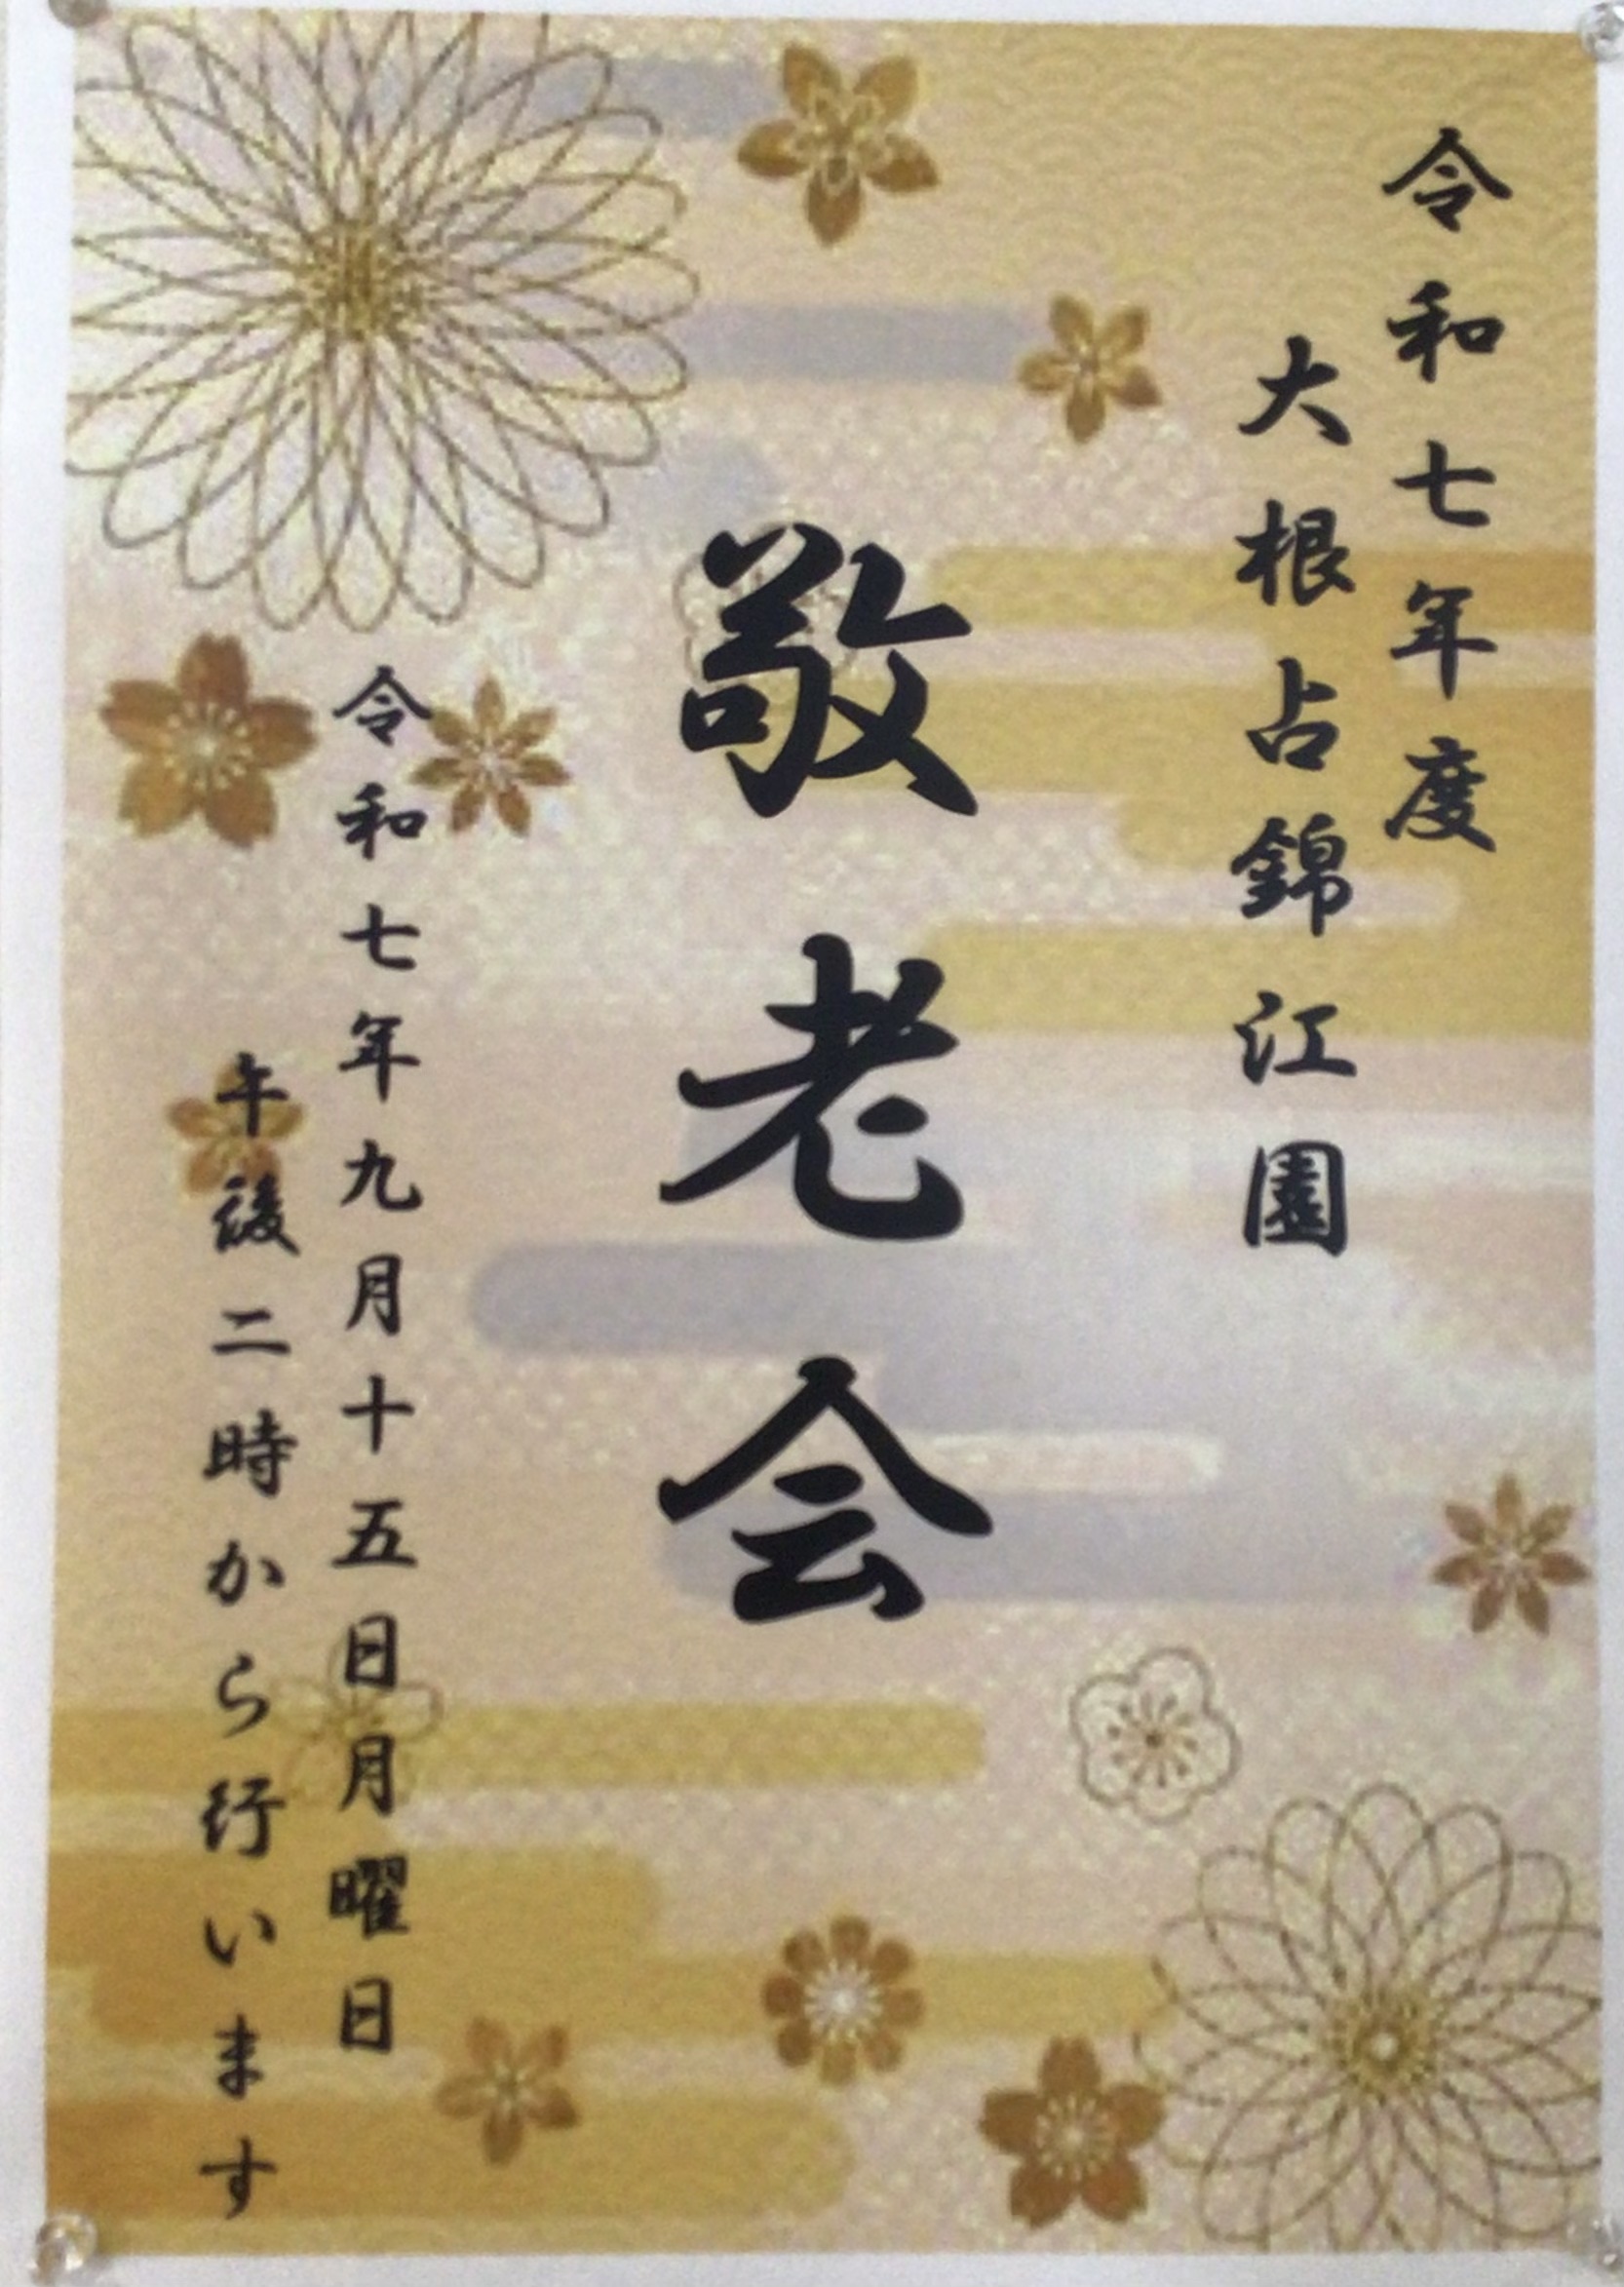 令和七年度
大根占錦江園
敬老会
令和七年九月十五日月曜日
午後二時から行います